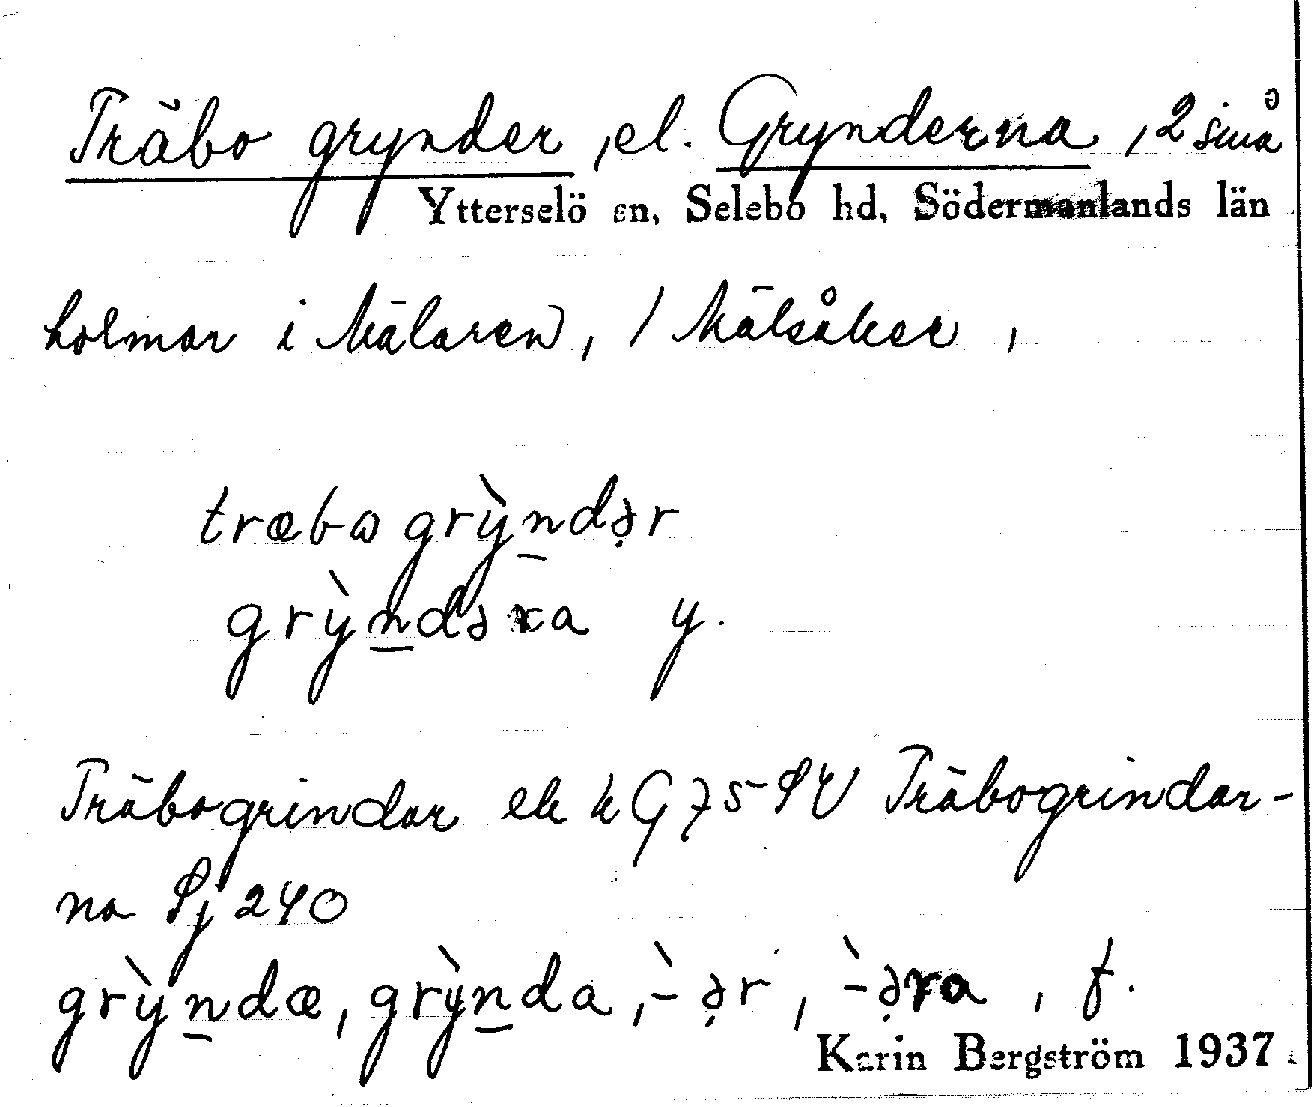 Träbo grynder, el. Grynderna, 2 små
Ytterselö sn, Selebo hd, Södermanlands län
holmar i Mälaren, / Mälsåker,
træbo grỳn̲də̣r
grỳn̲dəra y.
Träbogrindar ek k G 75 SV Träbogrindar-
na Sj 240
grỳn̲dæ, grỳn̲da, -̀ə̣r, -̀ə̣ra, f.
Karin Bergström 1937